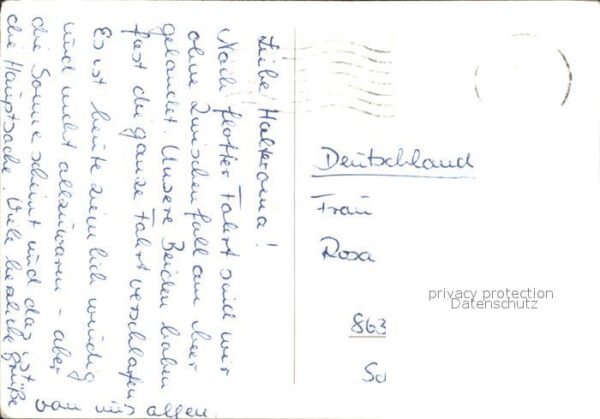 Liebe Halteroma!
Nach flotter Fahrt sind wir
ohne Zwischenfall am hier
gelandet. Unsere Beiden haben
fast die ganze Fahrt verschlafen
Es ist heute ziemlich windig
und nicht allzuwarm - aber
die Sonne scheint und das ist
die Hauptsache. Viele herzliche Grüße
von uns allen.
Deutschland
Frau
Rosa
863
privacy protection
Datenschutz